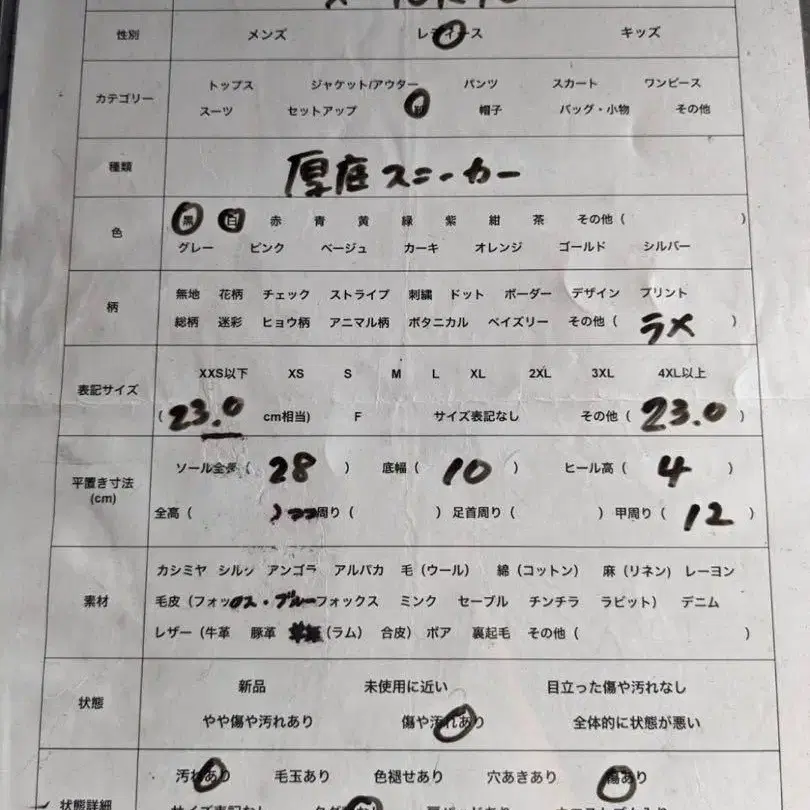 性別 メンズ レディース キッズ
カテゴリー
トップス ジャケット/アウター パンツ スカート ワンピース
スーツ セットアップ 靴 帽子 バッグ・小物 その他
種類 厚底スニーカー
色
黒 白 赤 青 黄 緑 紫 紺 茶 その他 ( )
グレー ピンク ベージュ カーキ オレンジ ゴールド シルバー
柄
無地 花柄 チェック ストライプ 刺繍 ドット ボーダー デザイン プリント
総柄 迷彩 ヒョウ柄 アニマル柄 ボタニカル ペイズリー その他 ( ラメ )
表記サイズ
XXS以下 XS S M L XL 2XL 3XL 4XL以上
( 23.0 cm相当) F サイズ表記なし その他 ( 23.0 )
平置き寸法
(cm)
ソール全長 ( 28 ) 底幅 ( 10 ) ヒール高 ( 4 )
全高 ( ) つつ周り ( ) 足首周り ( ) 甲周り ( 12 )
素材
カシミヤ シルク アンゴラ アルパカ 毛 (ウール) 綿 (コットン) 麻 (リネン) レーヨン
毛皮 (フォックス・ブルーフォックス ミンク セーブル チンチラ ラビット) デニム
レザー (牛革 豚革 (ラム) 合皮) ボア 裏起毛 その他 ( )
状態
新品 未使用に近い 目立った傷や汚れなし
やや傷や汚れあり 傷や汚れあり 全体的に状態が悪い
状態詳細
汚れあり 毛玉あり 色褪せあり 穴あきあり 傷あり
サイズ表記なし